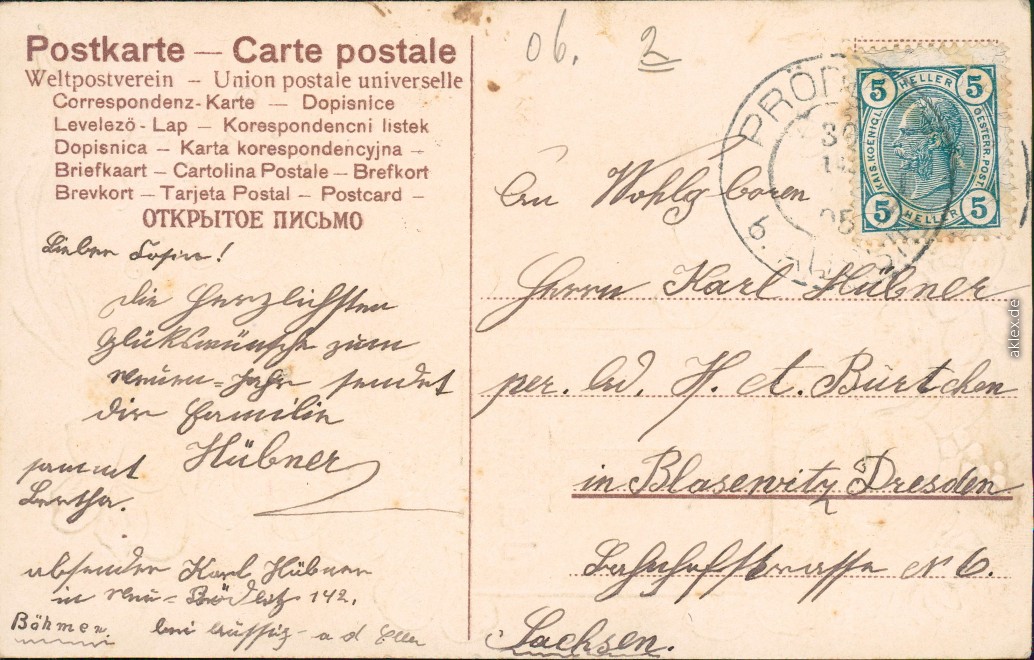 Postkarte — Carte postale
Weltpostverein — Union postale universelle
Correspondenz-Karte — Dopisnice
Levelező-Lap — Korespondencni listek
Dopisnica — Karta korespondencyjna —
Briefkaart — Cartolina Postale — Brefkort
Brevkort — Tarjeta Postal — Postcard —
ОТКРЫТОЕ ПИСЬМО
Lieber
die Herzlichsten
Glükswünsche zum
neuen=Jahr sendet
dir Familie
Hübner
sammt
Bertha.
absender Karl Hübner
in Neu= 142.
Böhmen. bei Aussig a d Elbe
06. 2
5 HELLER 5
KAIS. KOENIGL. OESTERR. POST.
5 HELLER 5
PRÖD
30
05
6
An Wohlgeboren
Herrn Karl Hübner
per. Ad. H. A. Bürtchen
in Blasewitz Dresden
Bahnhofstrasse N 6.
Sachsen.
aklex.de